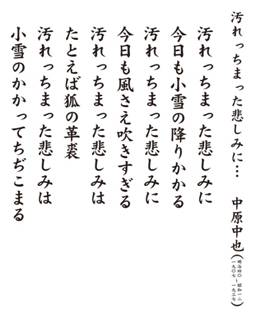 汚れっちまった悲しみに… 中原中也(明治四〇 〜 昭和一二 一九〇七 〜 一九三七)
汚れっちまった悲しみに
今日も小雪の降りかかる
汚れっちまった悲しみに
今日も風さえ吹きすぎる
汚れっちまった悲しみは
たとえば狐の革裘
汚れっちまった悲しみは
小雪のかかってちぢこまる